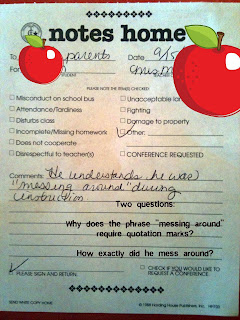 notes home
To parents Date 9/15
For
STUDENT
PLEASE NOTE THE ITEM(S) CHECKED:
Misconduct on school bus Unacceptable lan
Attendance/Tardiness Fighting
Disturbs class Damage to property
Incomplete/Missing homework Other:
Does not cooperate
Disrespectful to teacher(s) CONFERENCE REQUESTED
Comments: He understands he was
"messing around" during
instruction.
Two questions
Why does the phrase "messing around"
require quotation marks?
How exactly did he mess around?
PLEASE SIGN AND RETURN. CHECK IF YOU WOULD LIKE TO
REQUEST A CONFERENCE.
SEND WHITE COPY HOME